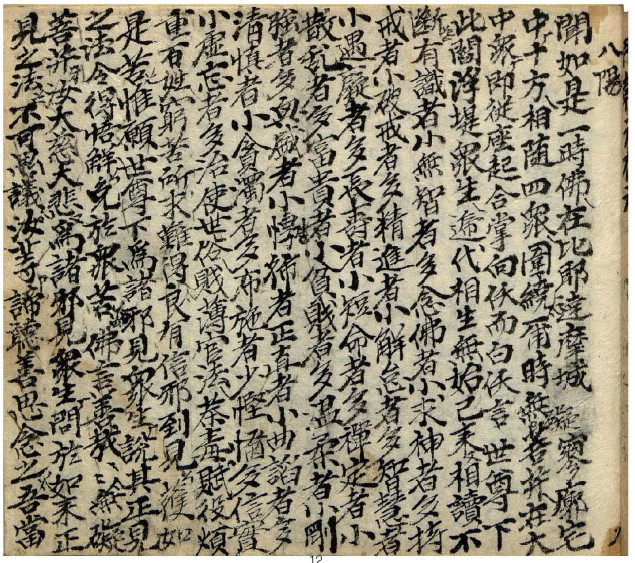 八陽
聞如是一時佛在比耶達摩城寥廓宅
中十方相隨四衆圍繞尒時無㝵菩薩在大
中衆即從座起合掌向仏而白仏言世尊下
此閻浮堤衆生遞代相生無始已来相讀不
斷有識者小無智者多念佛者小求神者多持
戒者小破戒者多精進者小解怠者多智慧者
小愚癡者多長壽者小短命者多禪定者小
散乱者多富貴者小貧賎者多温柔者小剛
強者多者小者正直者小曲諂者多
清慎者小貪濁者多布施者少慳悋多信實
小虚妄者多治使世俗賎薄官法荼毒賦役煩
重百姓窮苦所求難得良有信邪到見獲如
是苦惟願世尊下為諸邪見衆生說其正見
之法令得悟解免於衆苦佛言善哉、無礙
菩薩汝大慈大悲為諸邪見衆生問於如来正
見之法不可思議汝等諦聽善思念之吾當
12